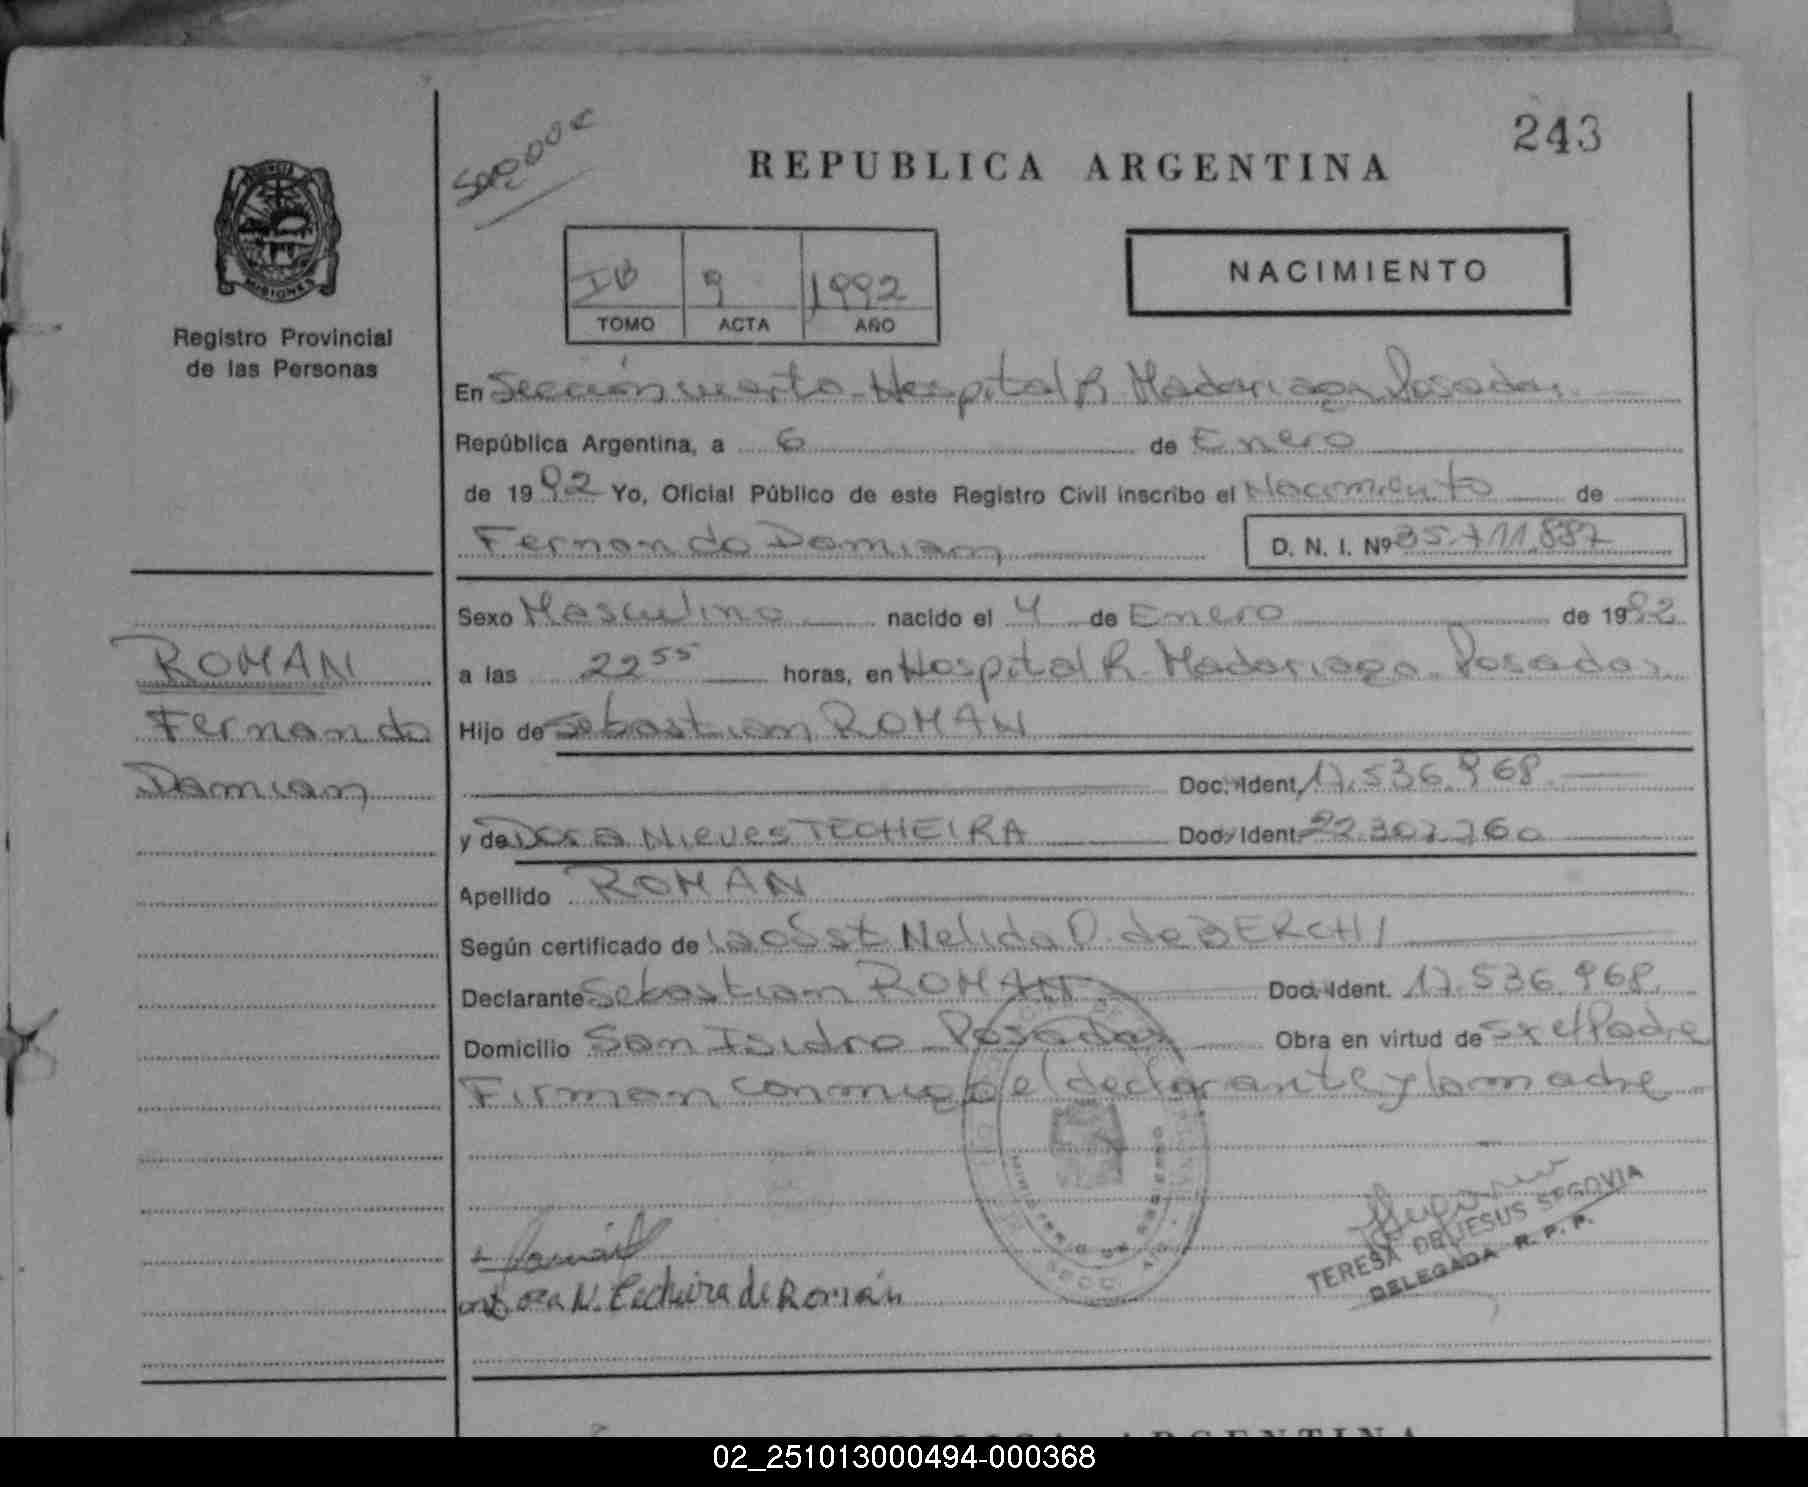 243
REPUBLICA ARGENTINA
PROVINCIA
MISIONES
Registro Provincial
de las Personas
9 1992
TOMO ACTA AÑO
NACIMIENTO
En Sección cuarta Hospital R Madariaga Posadas
República Argentina, a 6 de Enero
de 1992 Yo, Oficial Público de este Registro Civil inscribo el Nacimiento de
Fernando Damian D. N. I. Nº 35.711.887
Sexo Masculino nacido el 4 de Enero de 1992
a las 22 55 horas, en Hospital R. Madariaga Posadas
Hijo de Sebastian ROMAN
Doc. Ident. 17.536.968
y de Dora Nieves TECHEIRA Doc. Ident. 22.302.760
Apellido ROMAN
Según certificado de la obst Nelida D. de BERCHI
Declarante Sebastian ROMAN Doc. Ident. 17.536.968
Domicilio San Isidro Posadas Obra en virtud de ser el Padre
Firman conmigo el declarante y la madre
ROMAN
Fernando
Damian
Dora N. Techeira de Román
TERESA DE JESUS SEGOVIA
DELEGADA R. P. P.
REPUBLICA ARGENTINA
02_251013000494-000368